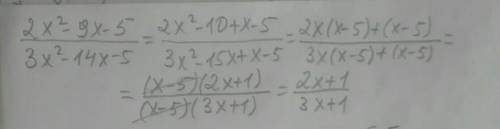 (2x²-9x-5)/(3x²-14x-5) = (2x²-10+x-5)/(3x²-15x+x-5) = (2x(x-5)+(x-5))/(3x(x-5)+(x-5)) =
= ((x-5)(2x+1))/((x-5)(3x+1)) = (2x+1)/(3x+1)